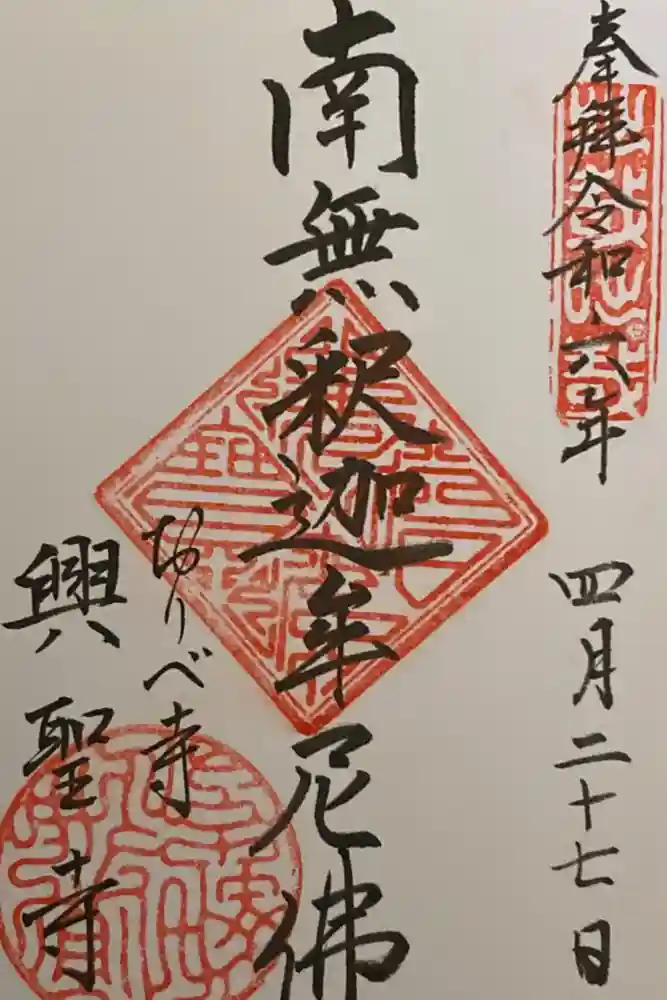 奉拝令和六年 四月二十七日
南無釈迦牟尼佛
おりべ寺
興聖寺